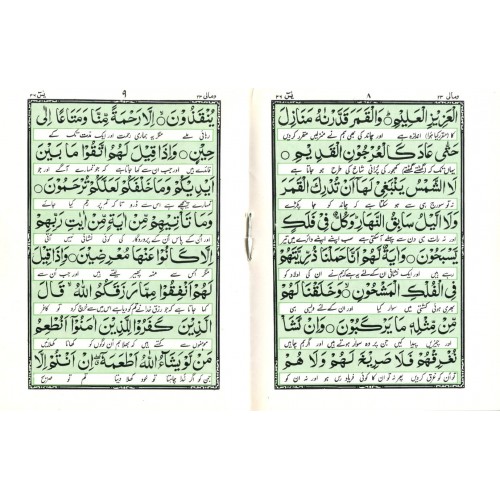 ومالی ۲۳ ۸ یٰسٓ ۳۶
الْعَزِيْزِ الْعَلِيْمِ ۝ وَالْقَمَرَ قَدَّرْنٰهُ مَنَازِلَ
کا اندازہ ہے اور چاند کی بھی ہم نے منزلیں مقرر کردیں
حَتّٰى عَادَ كَالْعُرْجُوْنِ الْقَدِيْمِ ۝
یہاں تک کہ گھٹتے گھٹتے کھجور کی پرانی شاخ کی طرح ہو جاتا ہے
لَا الشَّمْسُ يَنْۢبَغِيْ لَهَاۤ اَنْ تُدْرِكَ الْقَمَرَ
نہ تو سورج ہی سے ہو سکتا ہے کہ چاند کو جا پکڑے
وَلَا الَّيْلُ سَابِقُ النَّهَارِ ؕ وَكُلٌّ فِيْ فَلَكٍ
اور نہ رات ہی دن سے پہلے آسکتی ہے سب اپنے اپنے دائرے میں تیر
يَّسْبَحُوْنَ ۝ وَاٰيَةٌ لَّهُمْ اَنَّا حَمَلْنَا ذُرِّيَّتَهُمْ
رہے ہیں اور ایک نشانی ان کے لئے یہ ہے کہ ہم نے ان کی اولاد کو
فِي الْفُلْكِ الْمَشْحُوْنِ ۝ وَخَلَقْنَا لَهُمْ
بھری ہوئی کشتی میں سوار کیا اور ان کے لئے ویسی ہی
مِّنْ مِّثْلِهٖ مَا يَرْكَبُوْنَ ۝ وَاِنْ نَّشَاْ
اور چیزیں پیدا کیں جن پر وہ سوار ہوتے ہیں اور اگر ہم چاہیں
نُغْرِقْهُمْ فَلَا صَرِيْخَ لَهُمْ وَلَا هُمْ
تو ان کو غرق کردیں پھر نہ تو ان کا کوئی فریاد رس ہو اور نہ ان کو
ومالی ۲۳ ۹ یٰسٓ ۳۶
يُنْقَذُوْنَ ۝ اِلَّا رَحْمَةً مِّنَّا وَمَتَاعًا اِلٰى
رہائی ملے مگر یہ ہماری رحمت اور ایک مدت تک کے
حِيْنٍ ۝ وَاِذَا قِيْلَ لَهُمُ اتَّقُوْا مَا بَيْنَ
فائدے ہیں اور جب ان سے کہا جاتا ہے کہ جو تمہارے آگے اور جو
اَيْدِيْكُمْ وَمَا خَلْفَكُمْ لَعَلَّكُمْ تُرْحَمُوْنَ ۝
تمہارے پیچھے ہے اس سے ڈرو تاکہ تم پر رحم کیا جائے
وَمَا تَاْتِيْهِمْ مِّنْ اٰيَةٍ مِّنْ اٰيٰتِ رَبِّهِمْ
اور ان کے پاس ان کے پروردگار کی کوئی نشانی نہیں آتی
اِلَّا كَانُوْا عَنْهَا مُعْرِضِيْنَ ۝ وَاِذَا قِيْلَ
مگر اس سے منہ پھیر لیتے ہیں اور جب ان سے
لَهُمْ اَنْفِقُوْا مِمَّا رَزَقَكُمُ اللّٰهُ ۙ قَالَ
کہا جاتا ہے کہ جو رزق خدا نے تم کو دیا ہے اس میں سے خرچ کرو تو کافر
الَّذِيْنَ كَفَرُوْا لِلَّذِيْنَ اٰمَنُوْۤا اَنُطْعِمُ
مومنوں سے کہتے ہیں کہ بھلا ہم ان لوگوں کو کھانا کھلائیں
مَنْ لَّوْ يَشَآءُ اللّٰهُ اَطْعَمَهٗۤ ۖ اِنْ اَنْتُمْ اِلَّا
جن کو اگر خدا چاہتا تو خود کھلا دیتا تم تو صریح